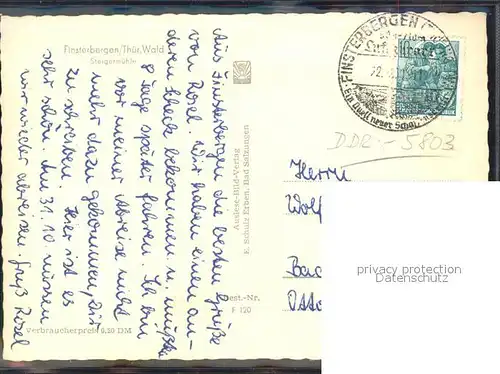 Finsterbergen/Thür. Wald
Steigermühle
Aus Finsterbergen die besten Grüße
von Rosel. Wir haben einen an-
deren Scheck bekommen u. mußte
8 Tage später fahren. Ich bin
vor meiner Abreise nicht
mehr dazu gekommen, Dir
zu schreiben. Hier ist es
sehr schön. Am 31.10. müssen
wir wieder abreisen. Gruß Rosel
Verbraucherpreis 0,20 DM
Auslese-Bild-Verlag
E. Schulz Erben, Bad Salzungen
Best.-Nr.
F 120
FINSTERBERGEN
Ein Quell neuer
DDR - 5803
Herrn
Wolf
Bad
Otto
privacy protection
Datenschutz